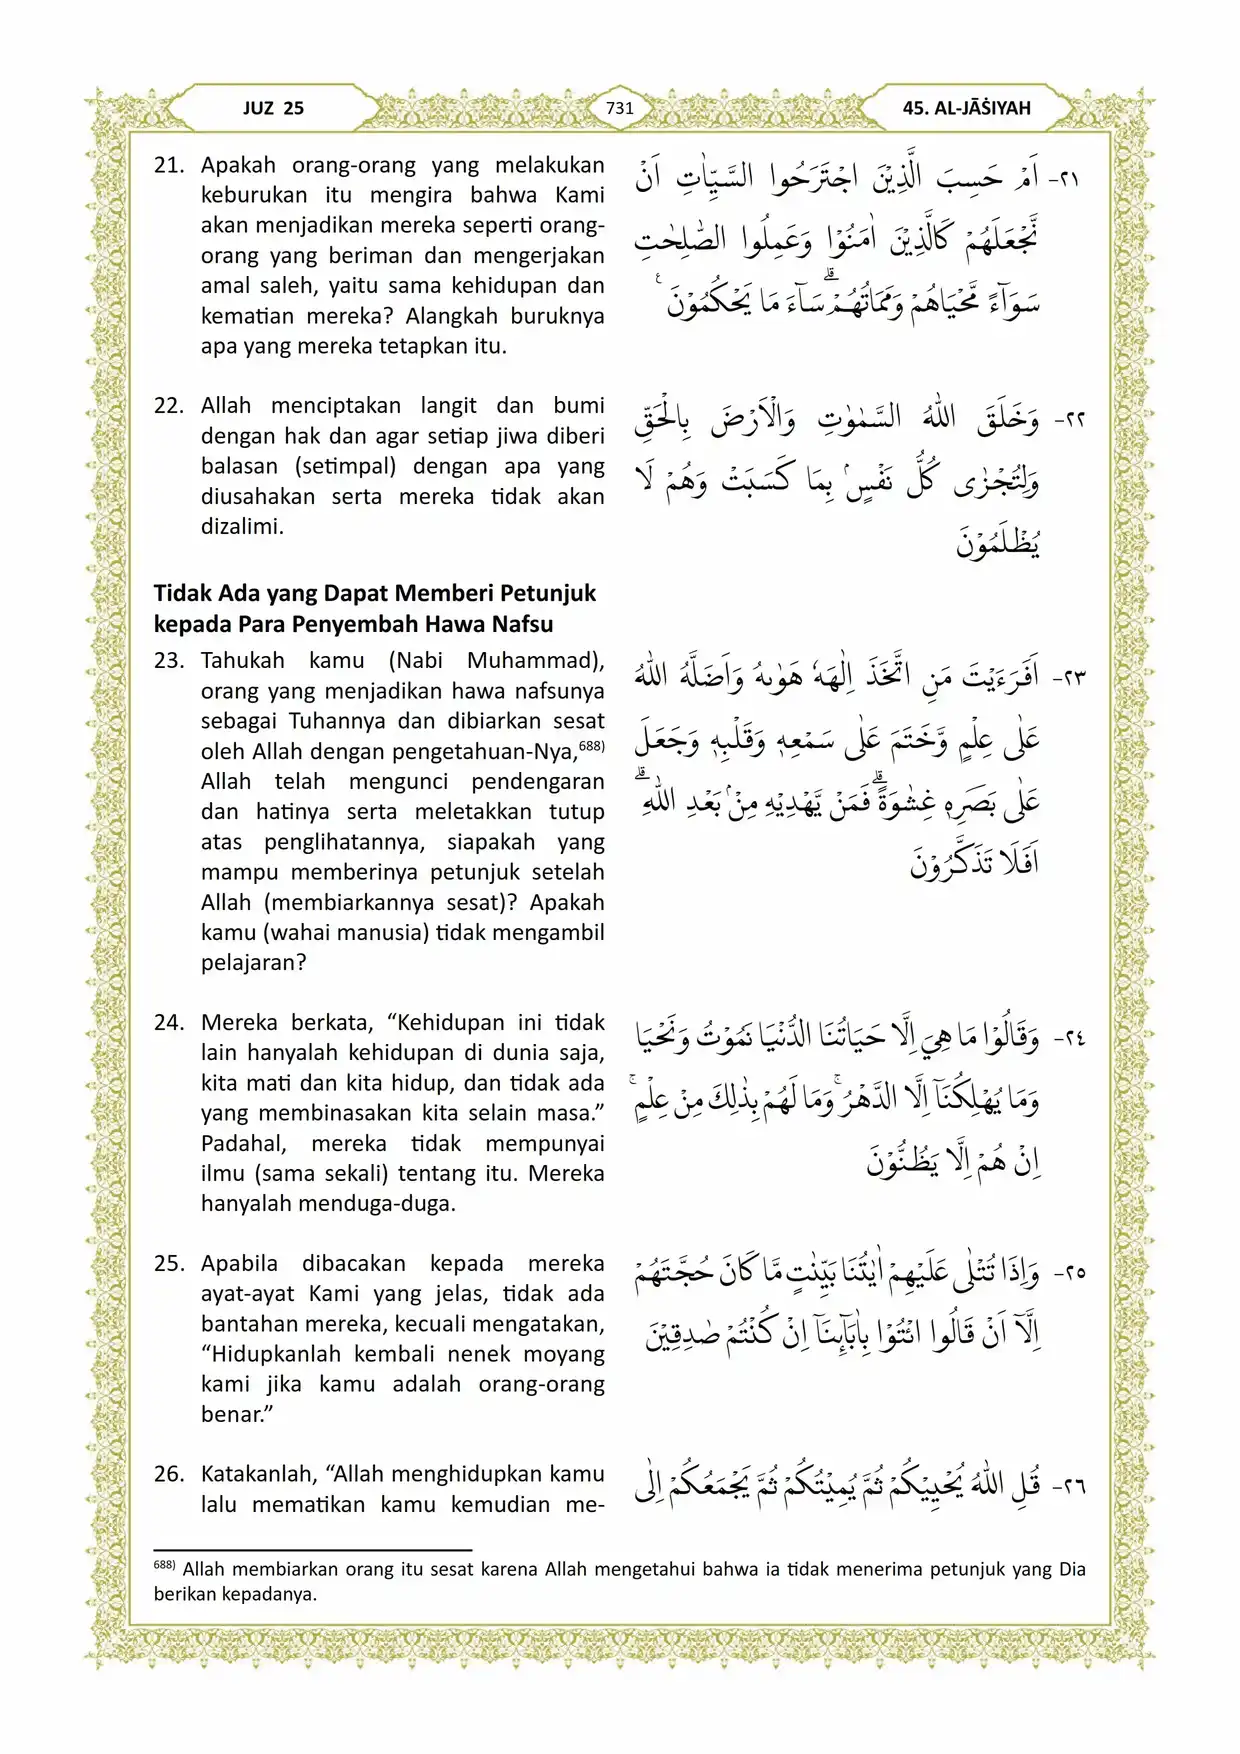 JUZ 25
731
45. AL-JĀṠIYAH
21. Apakah orang-orang yang melakukan
keburukan itu mengira bahwa Kami
akan menjadikan mereka seperti orang-
orang yang beriman dan mengerjakan
amal saleh, yaitu sama kehidupan dan
kematian mereka? Alangkah buruknya
apa yang mereka tetapkan itu.
٢١- اَمْ حَسِبَ الَّذِيْنَ اجْتَرَحُوا السَّيِّاٰتِ اَنْ
نَّجْعَلَهُمْ كَالَّذِيْنَ اٰمَنُوْا وَعَمِلُوا الصّٰلِحٰتِ
سَوَاۤءً مَّحْيَاهُمْ وَمَمَاتُهُمْ ۗسَاۤءَ مَا يَحْكُمُوْنَ ࣖ
22. Allah menciptakan langit dan bumi
dengan hak dan agar setiap jiwa diberi
balasan (setimpal) dengan apa yang
diusahakan serta mereka tidak akan
dizalimi.
٢٢- وَخَلَقَ اللّٰهُ السَّمٰوٰتِ وَالْاَرْضَ بِالْحَقِّ
وَلِتُجْزٰى كُلُّ نَفْسٍۢ بِمَا كَسَبَتْ وَهُمْ لَا
يُظْلَمُوْنَ
Tidak Ada yang Dapat Memberi Petunjuk
kepada Para Penyembah Hawa Nafsu
23. Tahukah kamu (Nabi Muhammad),
orang yang menjadikan hawa nafsunya
sebagai Tuhannya dan dibiarkan sesat
oleh Allah dengan pengetahuan-Nya,688)
Allah telah mengunci pendengaran
dan hatinya serta meletakkan tutup
atas penglihatannya, siapakah yang
mampu memberinya petunjuk setelah
Allah (membiarkannya sesat)? Apakah
kamu (wahai manusia) tidak mengambil
pelajaran?
٢٣- اَفَرَءَيْتَ مَنِ اتَّخَذَ اِلٰهَهٗ هَوٰىهُ وَاَضَلَّهُ اللّٰهُ
عَلٰى عِلْمٍ وَّخَتَمَ عَلٰى سَمْعِهٖ وَقَلْبِهٖ وَجَعَلَ
عَلٰى بَصَرِهٖ غِشٰوَةًۗ فَمَنْ يَّهْدِيْهِ مِنْۢ بَعْدِ اللّٰهِ ۗ
اَفَلَا تَذَكَّرُوْنَ
24. Mereka berkata, “Kehidupan ini tidak
lain hanyalah kehidupan di dunia saja,
kita mati dan kita hidup, dan tidak ada
yang membinasakan kita selain masa.”
Padahal, mereka tidak mempunyai
ilmu (sama sekali) tentang itu. Mereka
hanyalah menduga-duga.
٢٤- وَقَالُوْا مَا هِيَ اِلَّا حَيَاتُنَا الدُّنْيَا نَمُوْتُ وَنَحْيَا
وَمَا يُهْلِكُنَآ اِلَّا الدَّهْرُۚ وَمَا لَهُمْ بِذٰلِكَ مِنْ عِلْمٍۚ
اِنْ هُمْ اِلَّا يَظُنُّوْنَ
25. Apabila dibacakan kepada mereka
ayat-ayat Kami yang jelas, tidak ada
bantahan mereka, kecuali mengatakan,
“Hidupkanlah kembali nenek moyang
kami jika kamu adalah orang-orang
benar.”
٢٥- وَاِذَا تُتْلٰى عَلَيْهِمْ اٰيٰتُنَا بَيِّنٰتٍ مَّا كَانَ حُجَّتَهُمْ
اِلَّآ اَنْ قَالُوا ائْتُوْا بِاٰبَاۤىِٕنَآ اِنْ كُنْتُمْ صٰدِقِيْنَ
26. Katakanlah, “Allah menghidupkan kamu
lalu mematikan kamu kemudian me-
٢٦- قُلِ اللّٰهُ يُحْيِيْكُمْ ثُمَّ يُمِيْتُكُمْ ثُمَّ يَجْمَعُكُمْ اِلٰى
688) Allah membiarkan orang itu sesat karena Allah mengetahui bahwa ia tidak menerima petunjuk yang Dia
berikan kepadanya.